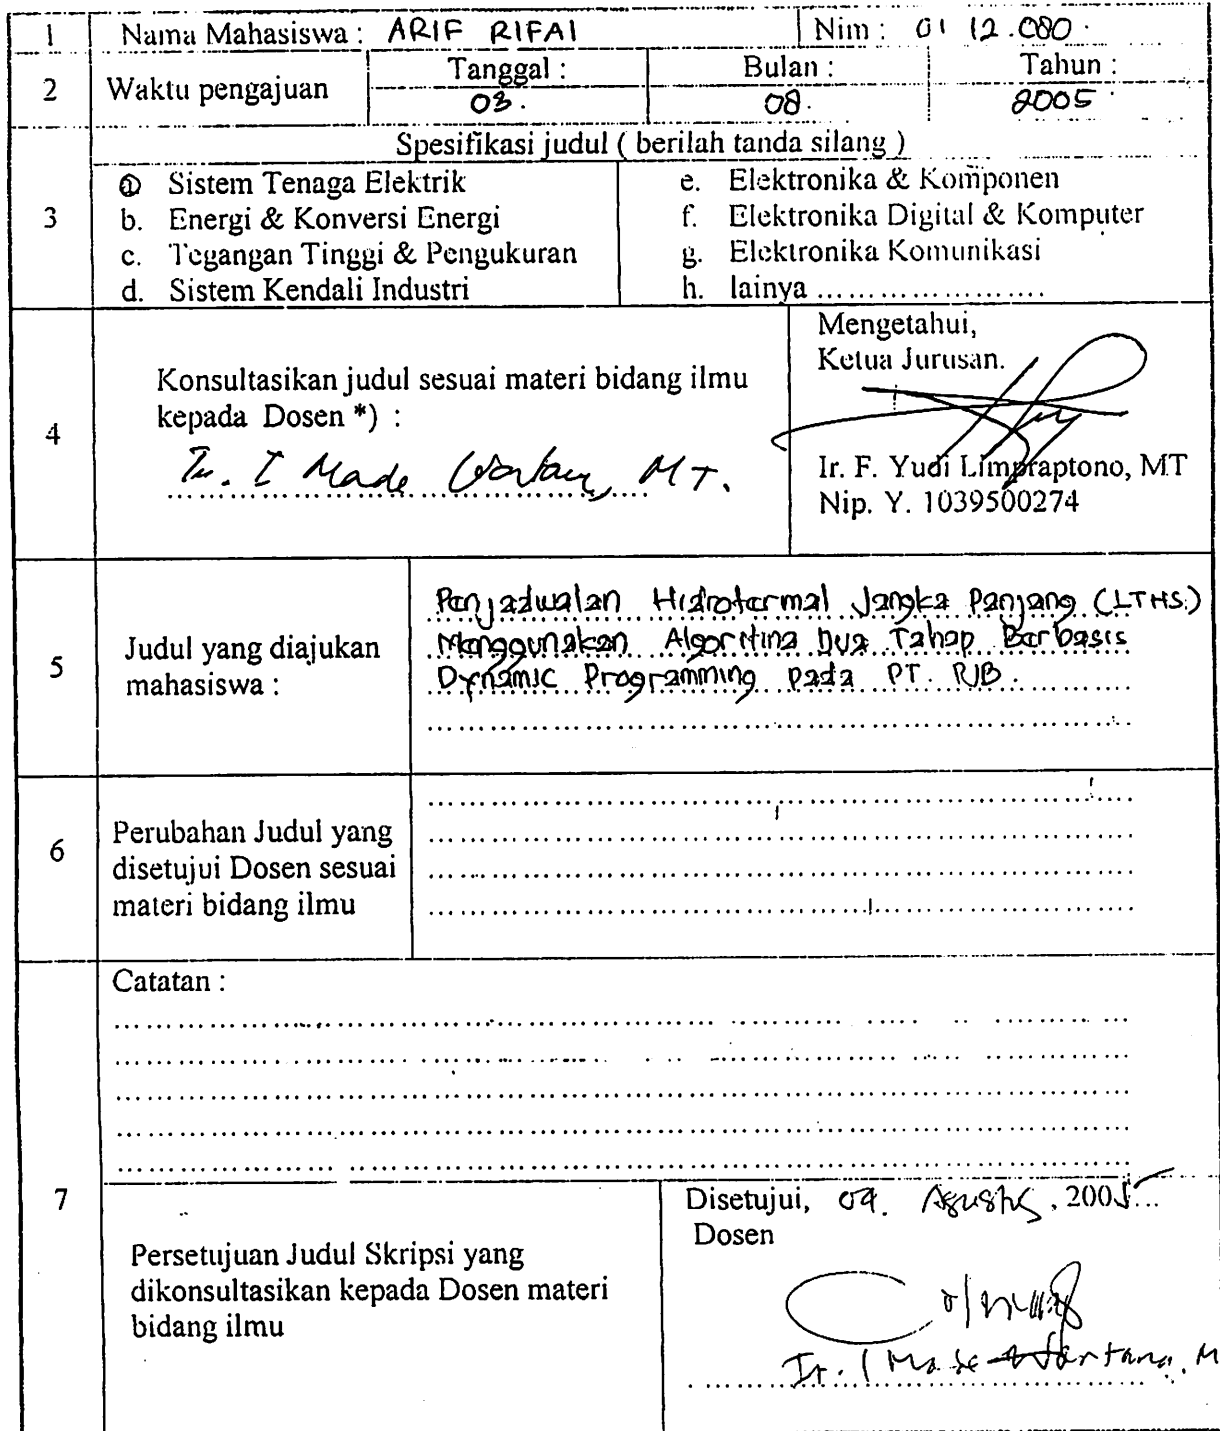 1 Nama Mahasiswa : ARIF RIFAI Nim : 01 12.080.
2 Waktu pengajuan Tanggal : Bulan : Tahun :
03. 08. 2005
Spesifikasi judul ( berilah tanda silang )
3
a Sistem Tenaga Elektrik
b. Energi & Konversi Energi
c. Tegangan Tinggi & Pengukuran
d. Sistem Kendali Industri
e. Elektronika & Komponen
f. Elektronika Digital & Komputer
g. Elektronika Komunikasi
h. lainya ........................
4
Konsultasikan judul sesuai materi bidang ilmu
kepada Dosen *) :
Ir. I Made Wartana, MT.
Mengetahui,
Ketua Jurusan.
Ir. F. Yudi Limpraptono, MT
Nip. Y. 1039500274
5
Judul yang diajukan
mahasiswa :
Penjadwalan Hidrotermal Jangka Panjang (LTHS)
Menggunakan Algoritma Dua Tahap Berbasis
Dynamic Programming pada PT. PJB.
6
Perubahan Judul yang
disetujui Dosen sesuai
materi bidang ilmu
7
Catatan :
Persetujuan Judul Skripsi yang
dikonsultasikan kepada Dosen materi
bidang ilmu
Disetujui, 09. Agustus, 2005
Dosen
Ir. I Made Wartana, M